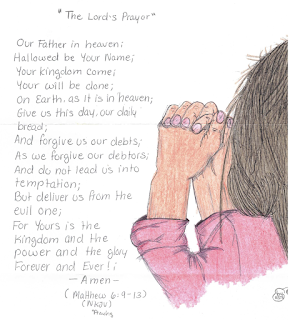 "The Lord's Prayer"
Our Father in heaven;
Hallowed be Your Name;
Your Kingdom come;
Your will be done;
On Earth, as It is in heaven;
Give us this day, our daily
bread;
And forgive us our debts;
As we forgive our debtors;
And do not lead us into
temptation;
But deliver us from the
evil one;
For Yours is the
Kingdom and the
power and the glory
Forever and Ever!;
-Amen-
(Matthew 6:9-13)
(NKJV)